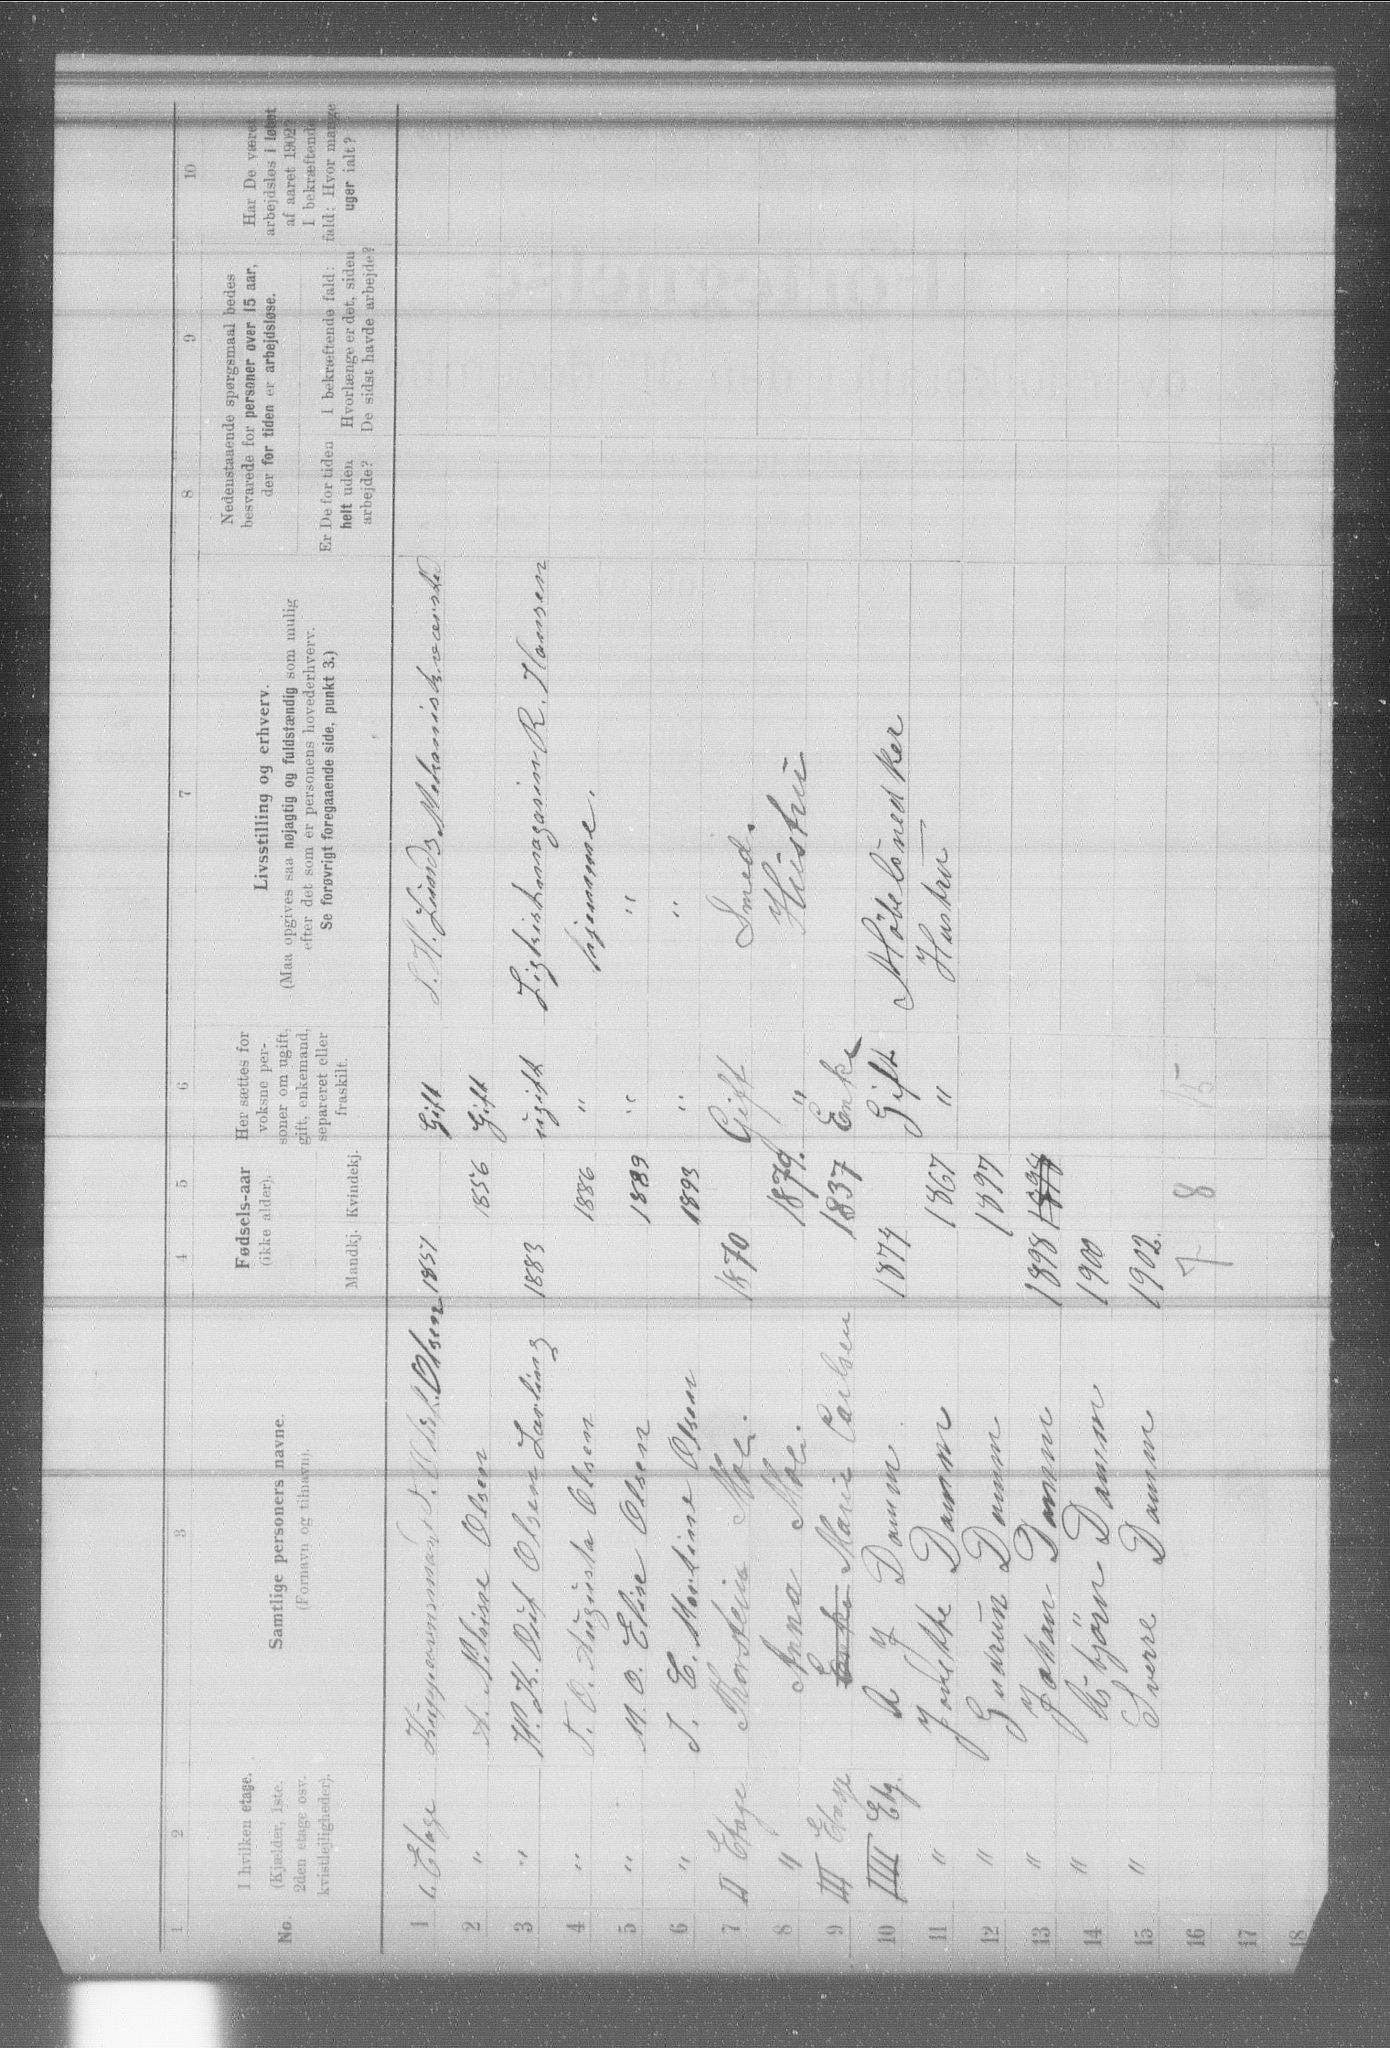 1 2 3 4 5 6 7 8 9 10
No.
I hvilken etage.
(Kjælder, 1ste,
2den etage osv.
kvistlejligheder).
Samtlige personers navne.
(Fornavn og tilnavn).
Fødsels-aar
(ikke alder).
Mandkj. Kvindekj.
Her sættes for
voksne per-
soner om ugift,
gift, enkemand,
separeret eller
fraskilt.
Livsstilling og erhverv.
(Maa opgives saa nøjagtig og fuldstændig som mulig
efter det som er personens hovederhverv.
Se forøvrigt foregaaende side, punkt 3.)
Nedenstaaende spørgsmaal bedes
besvarede for personer over 15 aar,
der for tiden er arbejdsløse.
Er De for tiden
helt uden
arbejde?
I bekræftende fald:
Hvorlænge er det, siden
De sidst havde arbejde?
Har De været
arbejdsløs i løbet
af aaret 1902?
I bekræftende
fald: Hvor mange
uger ialt?
1 1. Etage Olsen 1851 Gift
2 " A. Olsen 1856 Gift
3 " Olsen 1883 ugift Ligkistemagasin R. Hansen
4 " T. O. Augusta Olsen 1886 " hjemme.
5 " M. O. Elise Olsen 1889 " "
6 " J. E. Martine Olsen 1893 " "
7 II Etage Thorstein Moe. 1870 Gift Smed.
8 " Anna Moe. 1879. " Hustru
9 III Etage Enke Marie Carlsen 1837 Enke
10 IIII Etg. A J Damm 1874 Gift Møbelsnedker
11 " Damm 1867 " Hustru
12 " Gudrun Damm 1897
13 " Johan Damm 1898 1898
14 " Asbjörn Damm 1900
15 " Sverre Damm 1902.
16 7 8 15
17
18